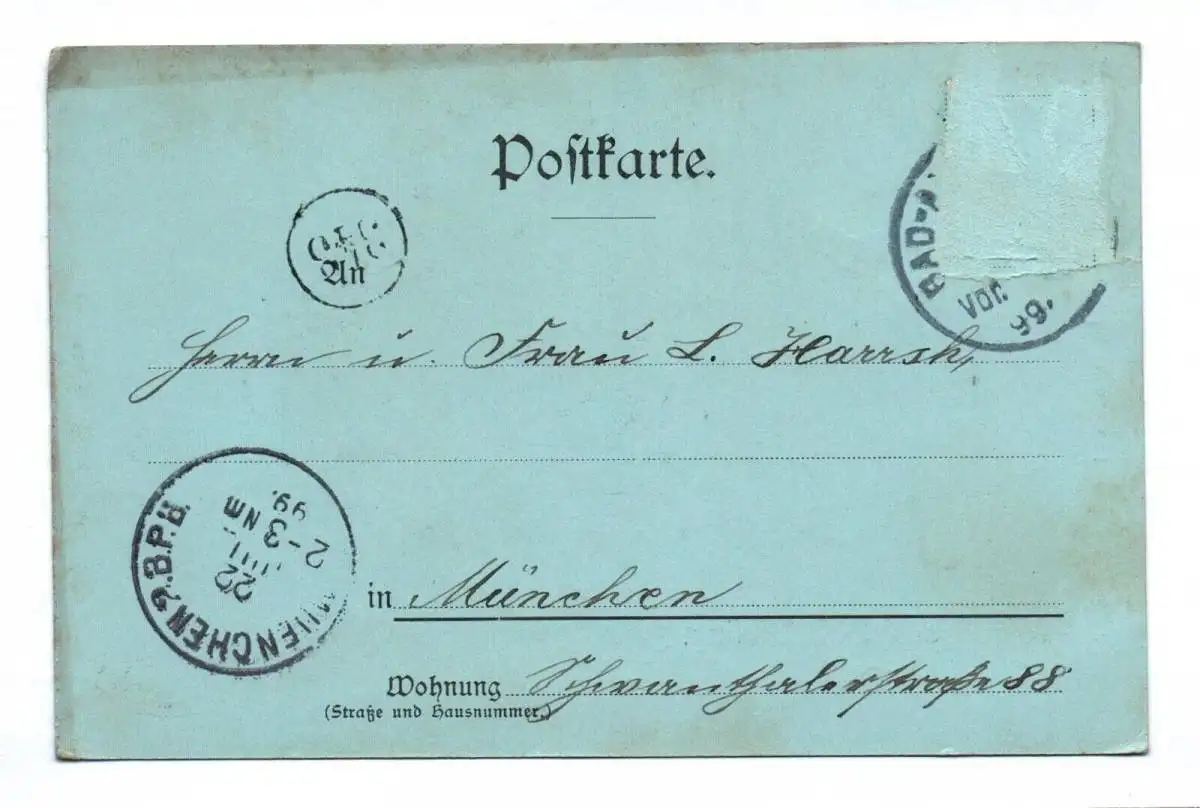 Postkarte.
An
BAD-
Vor.
99.
Herrn u. Frau L. Harrsch,
MUENCHEN 2. B.P.II.
22
VIII
2-3 NM
99.
in München
Wohnung Schwanthalerstraße 88
(Straße und Hausnummer.)